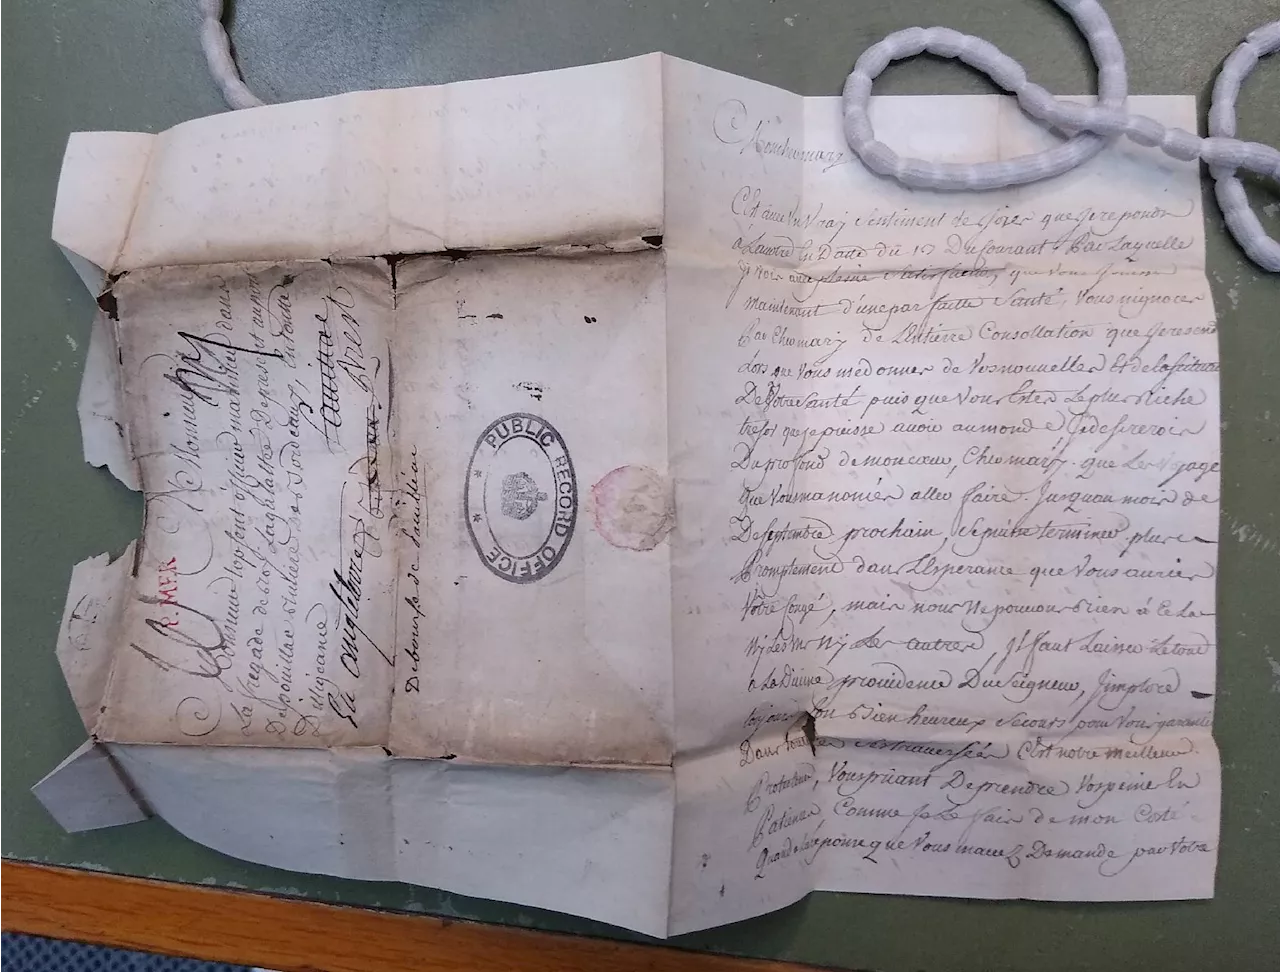 Mon cher mary
C'Est avec Un Vray Sentiment de que je repond
à La votre En Datte du 17 Du Courant Par Laquelle
je vois avec pleine Satisfaction, que Vous jouissé
maintenant d'une parfaitte Santé, Vous n'ignorez
Pas Cher mary de L'Entierre Consollation que je resens
Lors que Vous me donner de Vos nouvelles Et de la
De Votre Santé puis que Vous Estes Le plus Riche
tresor que je puisse avoir au monde Et je desirerois
Du profond de mon cœur, Cher mary. que Les Voyage
que Vous manoncér aller faire. Jusquau mois de
De Septembre prochain, se puisse terminer plus
Promptement dans L'Esperance que Vous auriez
Votre Congé, mais nous Ne pouvons Rien à Cela
Ny Les uns Ny Les autres jl faut Laisser Le tout
a La Divine providence Du Seigneur, J'implore
toujours Son Bien heureux Secours pour Vous garantir
Dans toutes Ces traversées C'Est notre meilleur
Protecteur, Vous priant De prendre Vos peine En
Patience Comme je le fais de mon Coté
Quand a la reponce que Vous mavez Demandé par Votre
R. MER
A Monsieur
Monsieur officier marinier dans
La fregade du roy La galathée De present au port
De pouillac riviere de Bordeaux,
Diligeanse
En angleterre
Brest
Debourse de
PUBLIC RECORD OFFICE